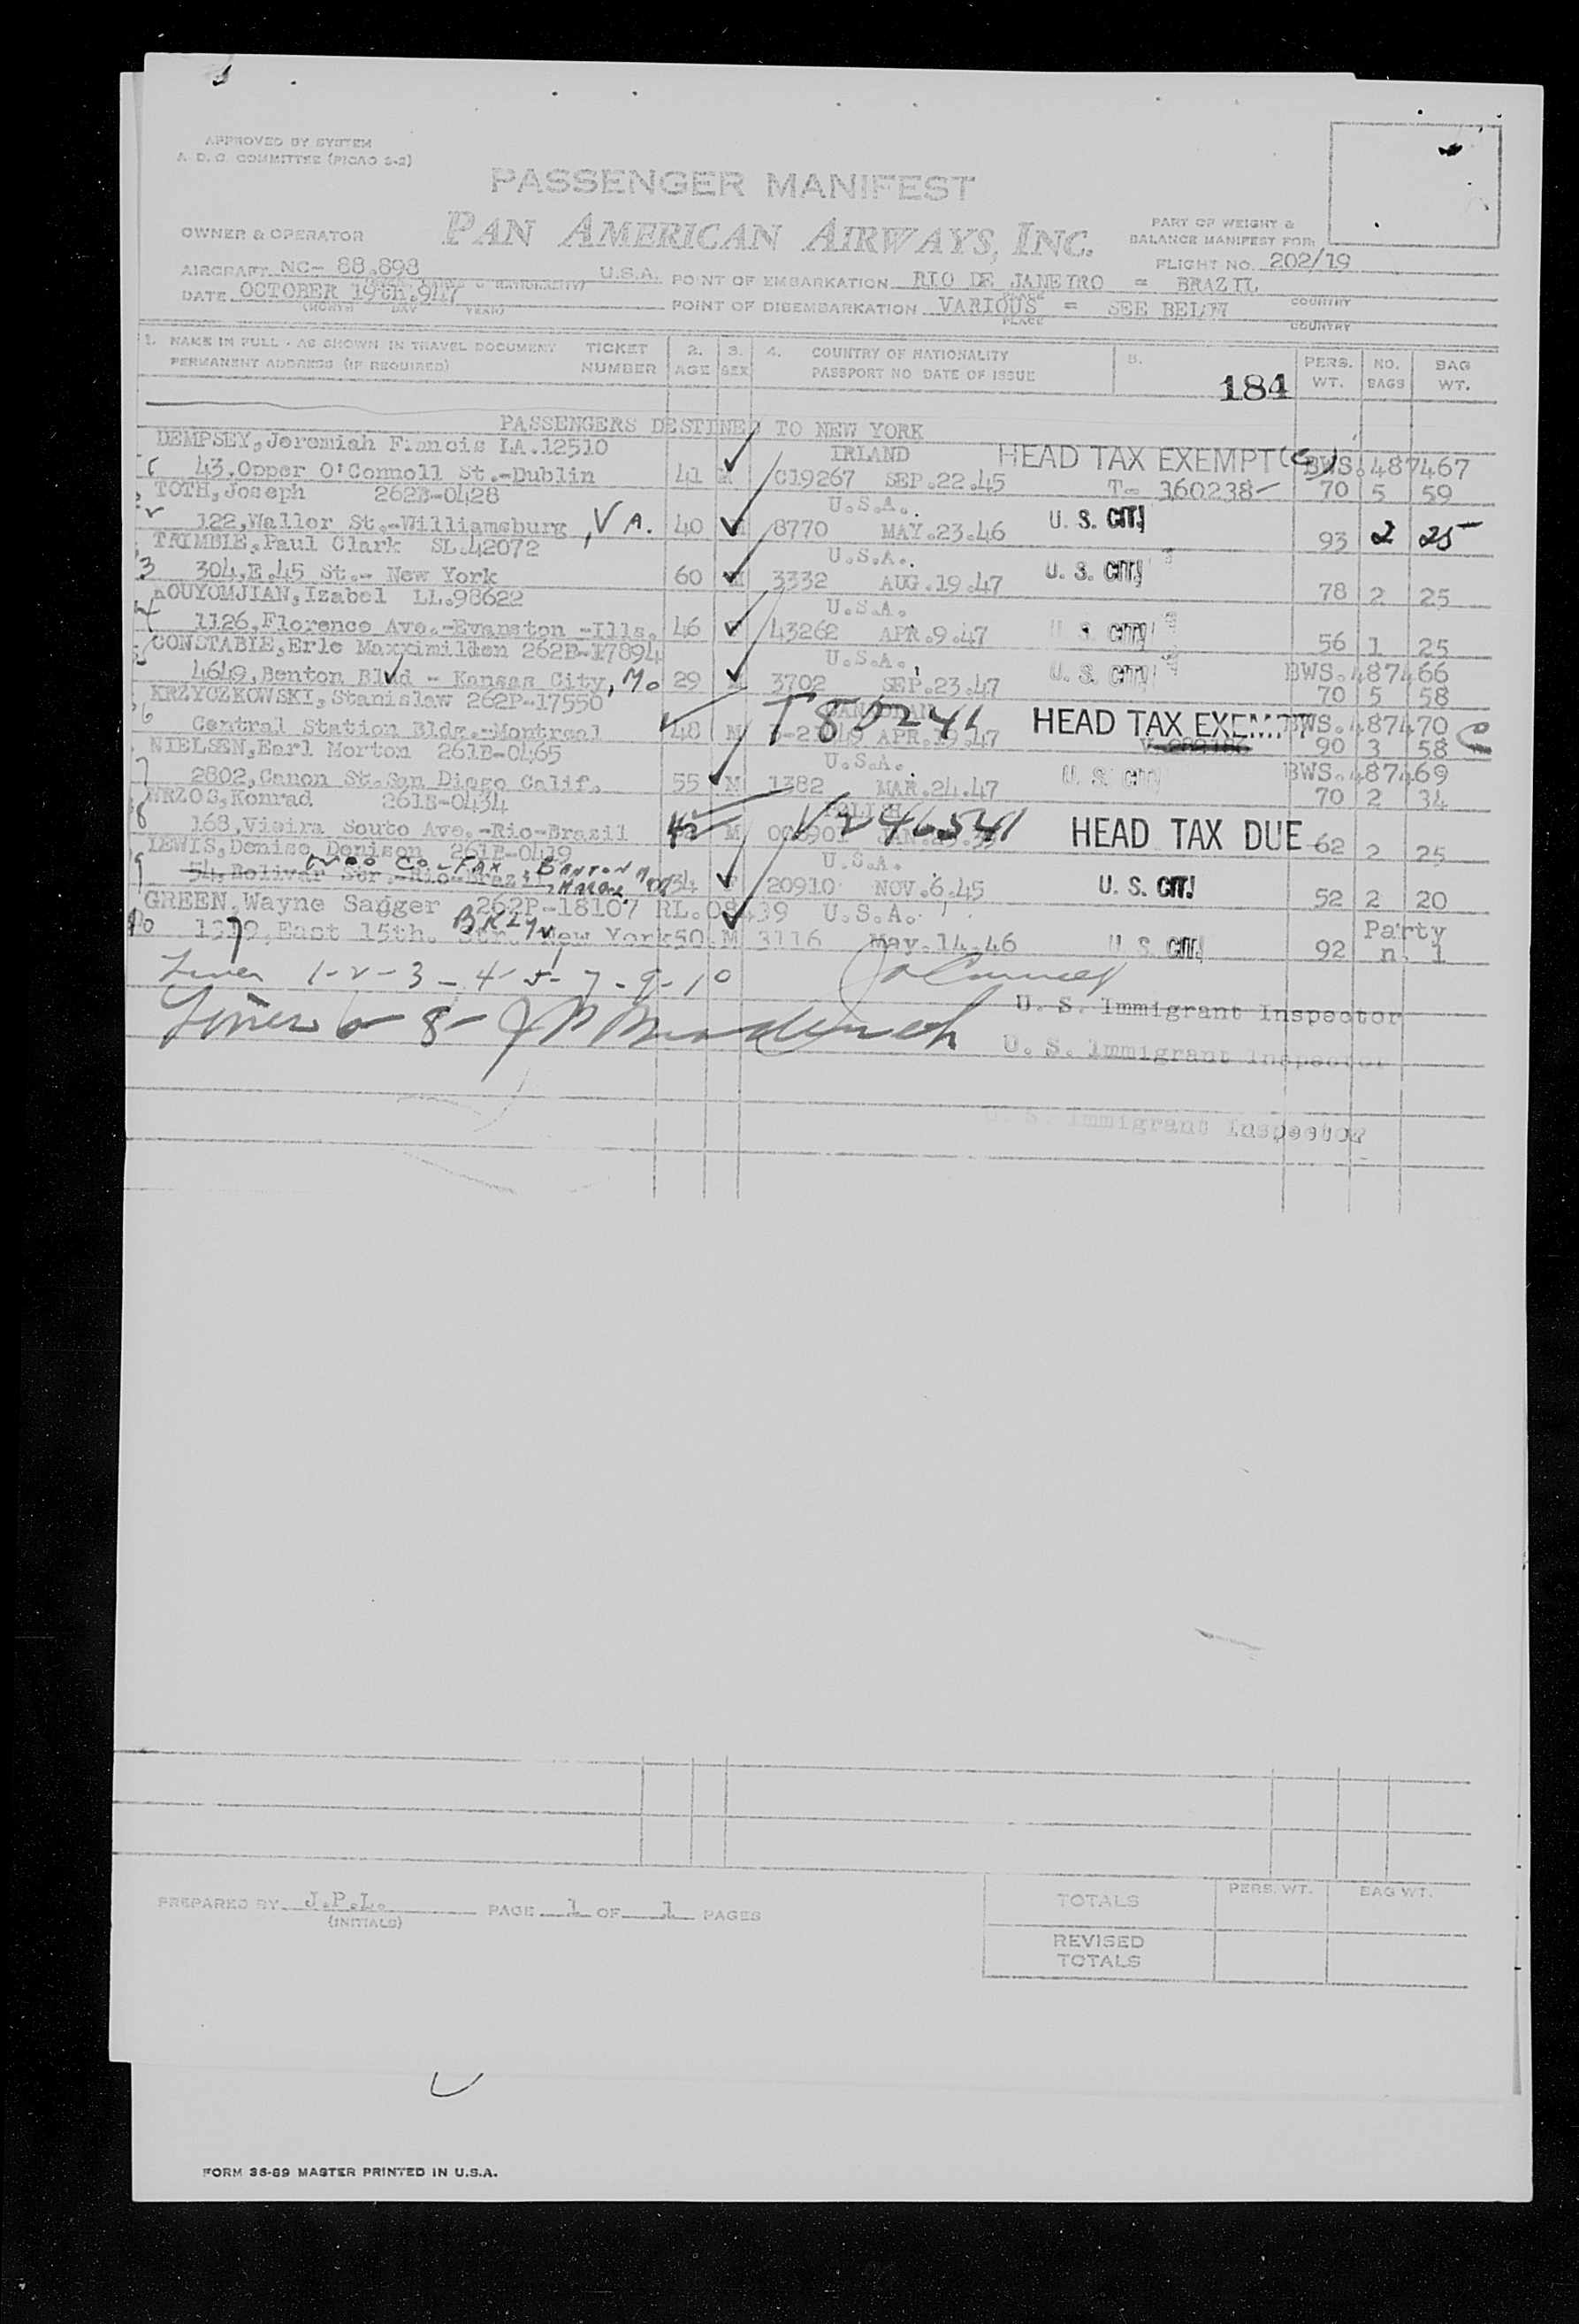 APPROVED BY SYSTEM
A. D. C. COMMITTEE (PICAO S-2)
PASSENGER MANIFEST
PAN AMERICAN AIRWAYS, INC.
OWNER & OPERATOR
PART OF WEIGHT &
BALANCE MANIFEST FOR:
AIRCRAFT NC- 88.898 U.S.A. POINT OF EMBARKATION RIO DE JANEIRO = BRAZIL
FLIGHT NO. 202/19
DATE OCTOBER 19th.947 POINT OF DISEMBARKATION VARIOUS = SEE BELOW
(MONTH DAY YEAR) PLACE COUNTRY
COUNTRY
1. NAME IN FULL - AS SHOWN IN TRAVEL DOCUMENT TICKET 2. 3. 4. COUNTRY OF NATIONALITY 5. PERS. NO. BAG
PERMANENT ADDRESS (IF REQUIRED) NUMBER AGE SEX PASSPORT NO DATE OF ISSUE WT. BAGS WT.
184
PASSENGERS DESTINED TO NEW YORK
DEMPSEY, Jeremiah Francis LA.12510 IRLAND HEAD TAX EXEMPT BWS.487467
43, Opper O'Connoll St.-Dublin 41 M C19267 SEP.22.45 T- 160238- 70 5 59
TOTH, Joseph 262B-0428 U.S.A.
122, Waller St.-Williamsburg, VA. 40 M 8770 MAY.23.46 U. S. CIT. 93 2 25
TRIMBLE, Paul Clark SL.42072 U.S.A.
3 304, E.45 St.- New York 60 M 3332 AUG.19.47 U. S. CIT. 78 2 25
KOUYOMJIAN, Izabel LL.98622 U.S.A.
4 1126, Florence Ave.-Evanston -Ills. 46 43262 APR.9.47 U. S. CIT. 56 1 25
CONSTABLE, Erle Maxximilden 262B-17894 U.S.A. BWS.487466
5 4649, Benton Blvd - Kansas City, Mo 29 M 3702 SEP.23.47 U. S. CIT. 70 5 58
KRZYCZKOWSKI, Stanislaw 262P-17550 CANADIAN T 80241 HEAD TAX EXEMPT BWS.487470
6 Central Station Bldg.-Montreal 48 M APR.19.47 90 3 58
NIELSEN, Earl Morton 261B-0465 U.S.A. BWS.487469
7 2802, Canon St.San Diego Calif. 55 M 1382 MAR.24.47 U. S. CIT. 70 2 34
WRZOS, Konrad 261B-0434 POLISH V 246541 HEAD TAX DUE
8 168, Vieira Souto Ave.-Rio-Brazil 42 M 62 2 25
LEWIS, Denise Denison 261B-0419 U.S.A.
9 54, Bolivar Str.-Rio-Brazil 34 F 20910 NOV.6.45 U. S. CIT. 52 2 20
GREEN, Wayne Sagger 262P-18107 RL.08439 U.S.A. Party
10 1979, East 15th. Str. New York BKLYN 50 M 3116 May.14.46 U. S. CIT. 92 n. 1
Lines 1-2-3-4-5-7-9-10
U. S. Immigrant Inspector
Lines 6-8-
U. S. Immigrant Inspector
U. S. Immigrant Inspector
PREPARED BY J.P.L. PAGE 1 OF 1 PAGES
(INITIALS)
TOTALS PERS. WT. BAG WT.
REVISED
TOTALS
FORM 36-89 MASTER PRINTED IN U.S.A.